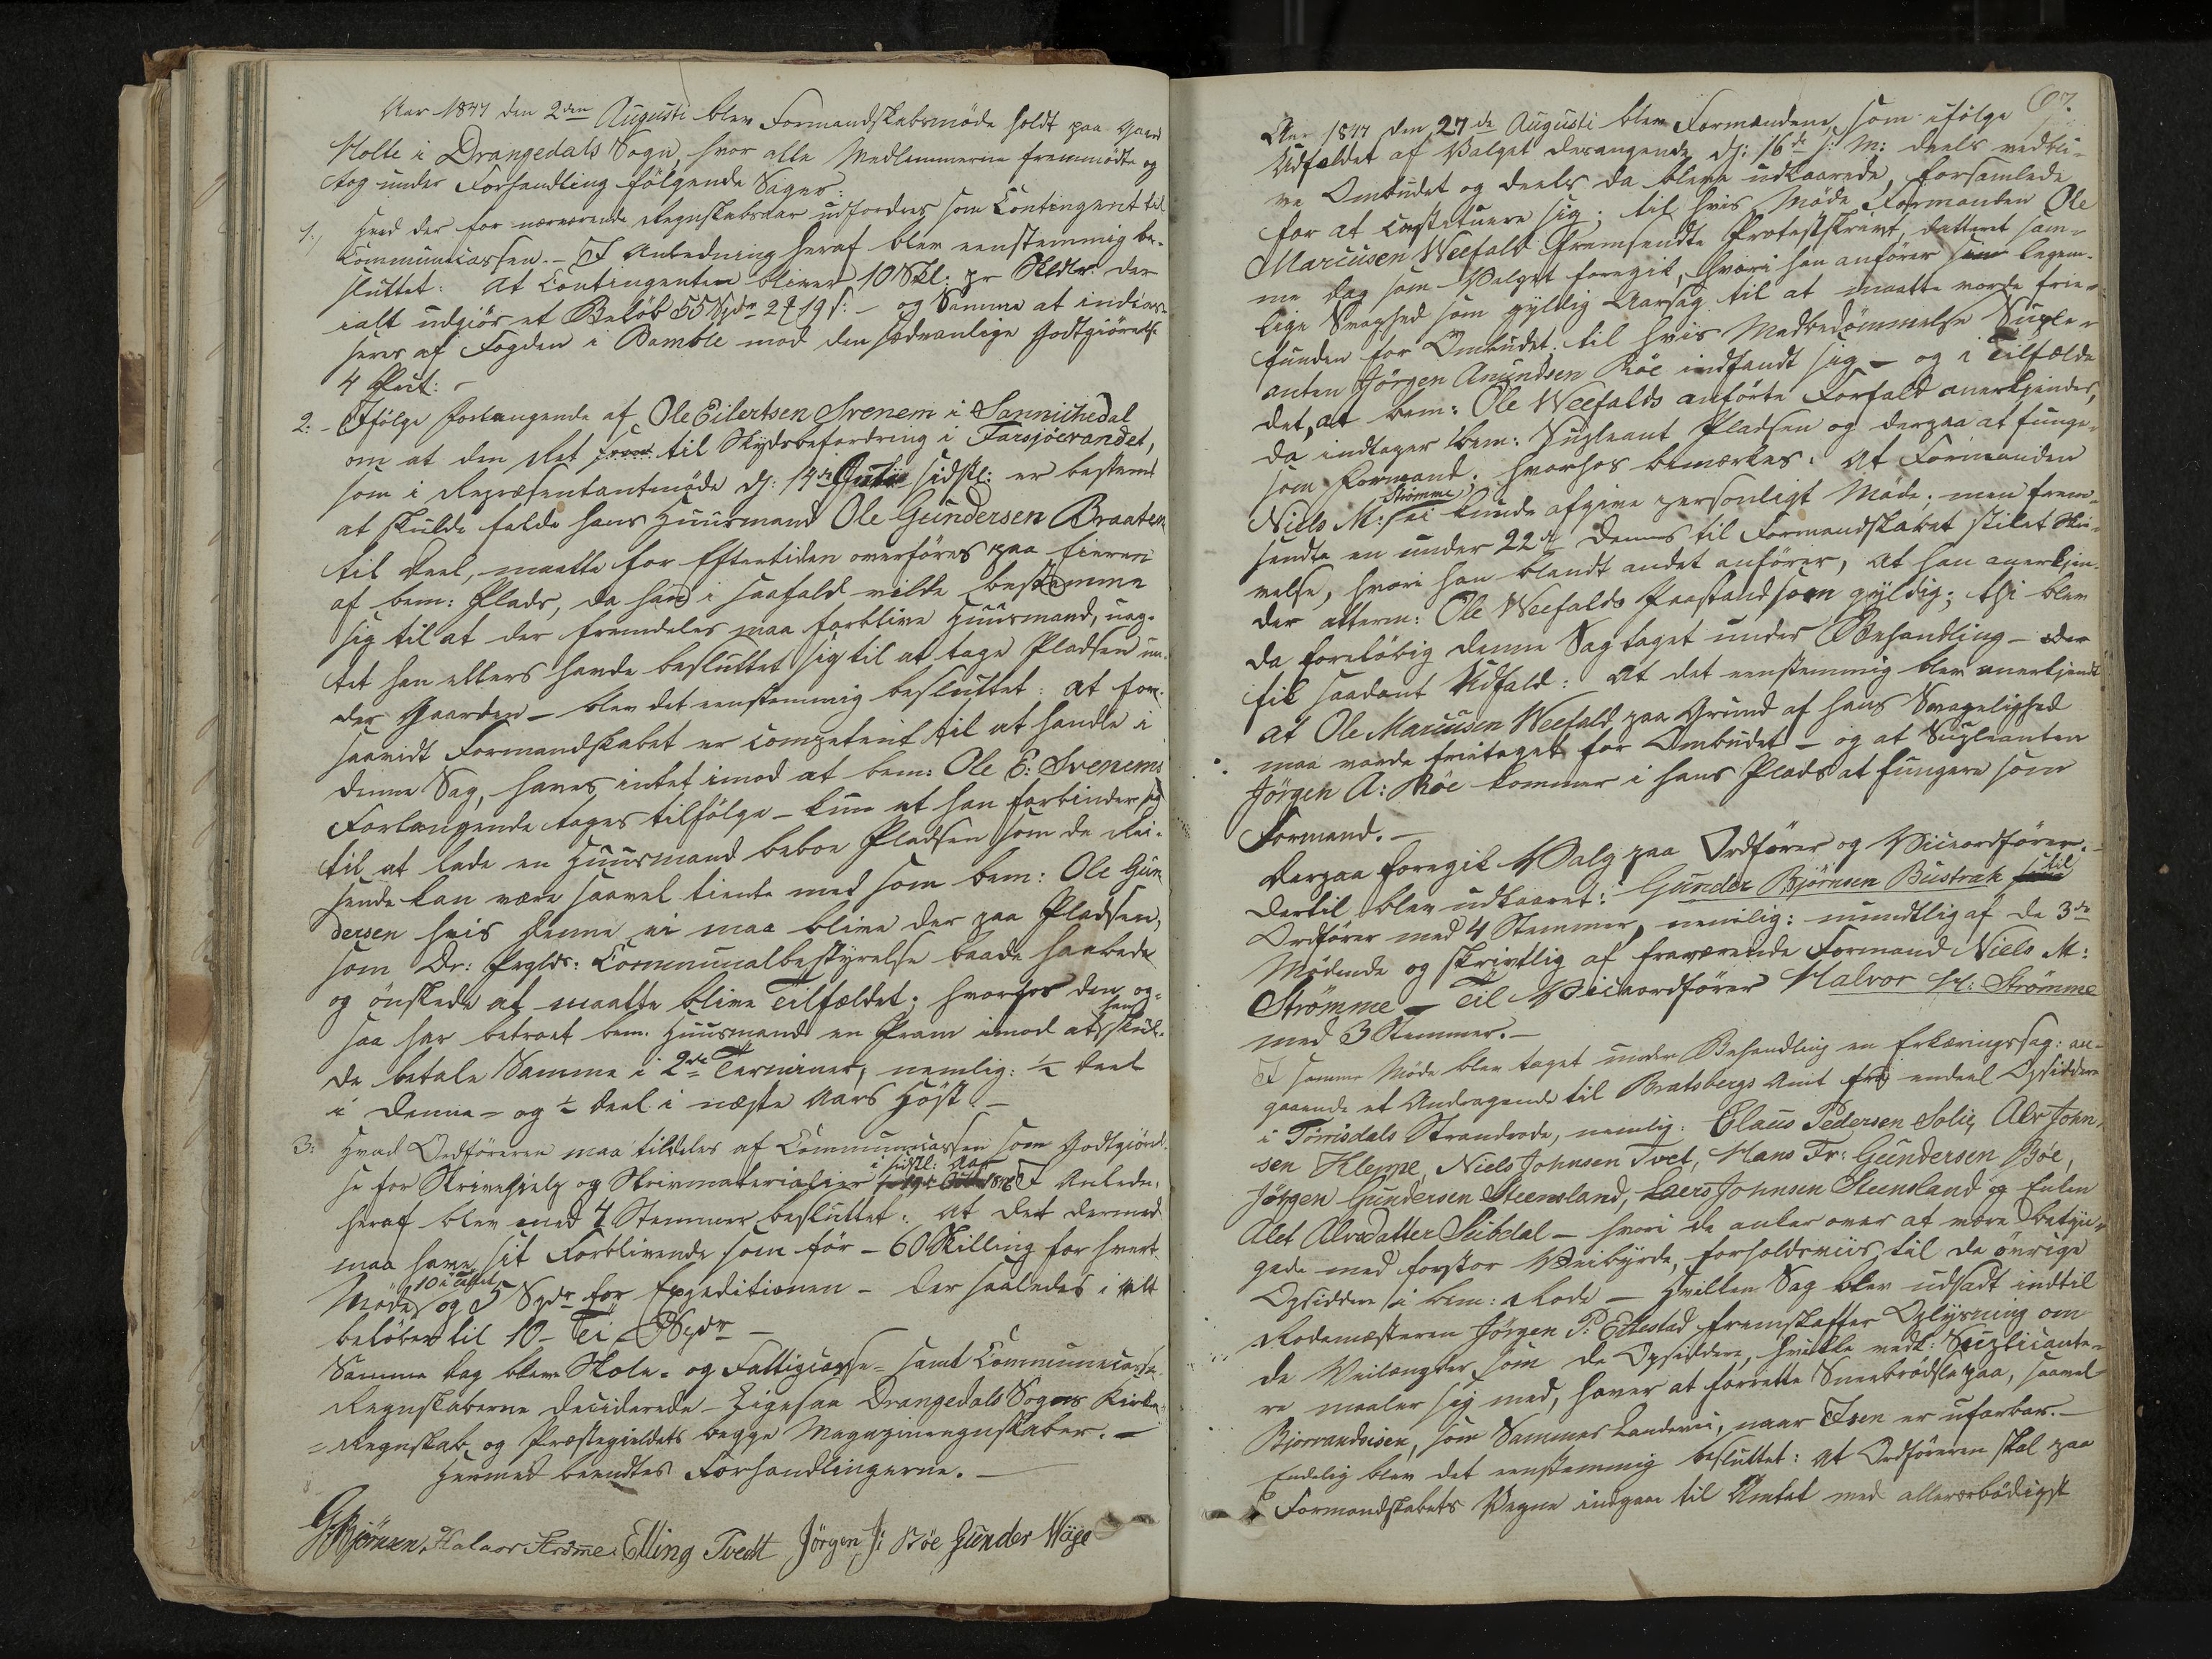 Aar 1847 den 2den Augusti blev Formandskabsmöde holdt paa Gaard
Holte i Drangedals Sogn, hvor alle Medlemmerne fremmödte og
tog under Forhandling fölgende Sager:
1., Hvad der for nærværende Regnskabsaar udfordres som Contingent til
Communecassen. – I Anledning heraf blev eenstemmig be-
sluttet: At Contingenten bliver 10 Skl: pr Skldlr. der
ialt udgiör et Belöb 55 Spdr 2 19 s: – og Samme at indcas-
seres af Fogden i Bamble mod den sædvanlige Godtgiörelse
4 Pct: –
2. – Ifölge Forlangende af Ole Eilertsen Svenem i Sannichedal
om at den Ret til Skydsbefordring i Farsjöevandet,
som i Repræsentantmöde d: 14de sidstl: er bestemt
at skulde falde hans Huusmand Ole Gundersen Braaten
til Deel, maatte for Eftertiden overföres paa Eieren
af bem: Plads, da han i saafald vilde bestemme
sig til at der fremdeles maa forblive Huusmand, uag-
tet han ellers havde besluttet sig til at tage Pladsen un-
der Gaarden – blev det eenstemmig besluttet: at for-
saavidt Formandskabet er competent til at handle i
denne Sag, haves intet imod at bem: Ole E: Svenems
Forlangende tages tilfölge – kun at han forbinder sig
til at lade en Huusmand beboe Pladsen som de Rei-
sende kan være saavel tiente med som bem: Ole Gun
dersen hvis denne ei maa blive der paa Pladsen,
som Dr: Prglds: Communalbestyrelse baade haabede
og önskede at maatte blive Tilfældet; hvorhos den og-
saa har betroet bem. Huusmand en Pram imod at han skul-
de betale Samme i 2de Terminer, nemlig: ½ Deel
i denne – og ½ Deel i næste Aars Höst. –
3: Hvad Ordföreren maa tildeles af Communecassen som Godtgiörel-
se for Skrivehjelp og Skrivmaterialier i sidstl: Aar I Anledn.
heraf blev med 4 Stemmer besluttet: At det dermed
maa have sit Forblivende som för – 60 Skilling for hvert
Möde 10 i Tallet og 5 Spdr for Expeditionen – der saaledes i Alt
belöber til 10 – Ti – Spdr –
Samme Dag bleve Skole- og Fattigcasse- samt Communecasse-
Regnskaberne deciderede – Ligesaa Drangedals Sogns Kirke-
= Regnskab og Præstegieldets begge Magazinregnskaber. –
Hermed beendtes Forhandlingerne. –
G. Björnsen, Halvor Strömme. Elling Tvedt Jörgen J: Böe Gunder Wöge
67.
Aar 1847 den 27de Augusti blev Formændene, som ifölge
Udfaldet af Valget desangende d: 16de s: M: deels vedbli-
ve Ombudet og deels da bleve udkaarede, forsamlede
for at constituere sig; til hvis Möde Formanden Ole
Marcusen Weefald fremsendte Protestskrivt, datteret sam-
me Dag som Valget foregik, hvori han anförer sin legem-
lige Svaghed som gyldig Aarsag til at maatte vorde frie-
funden for Ombudet. til hvis Medbedömmelse Suple-
anten Jörgen Amundsen Böe indfandt sig – og i Tilfælde
det, at bem: Ole Weefalds anförte Forfald anerkjendes,
da indtager bem: Supleant Pladsen og dergaa at funge-
som Formand; hvorhos bemærkes: At Formanden
Niels M: Strömme ei kunde afgive personligt Möde; men frem-
sendte en under 22de Dennes til Formandskabet stilet Skri-
velse, hvori han blandt andet anförer, at han anerkjen-
der ofterm: Ole Weefalds Paastand som gyldig; thi blev
da forelöbig denne Sag taget under Behandling – der
fik saadant Udfald: At det eenstemmig blev anerkjendt
at Ole Marcusen Weefald paa Grund af hans Svagelighed
maa vorde fritaget for Ombudet – og at Supleanten
Jörgen A: Böe kommer i hans Plads at fungere som
Formand. –
Derpaa foregik Valg paa Ordförer og Viceordförer. –
Dertil blev udkaaret: Gunder Björnsen Bustrak til
Ordförer med 4 Stemmer, nemlig: mundtlig af de 3de
Mödende og skrivtlig af fraværende Formand Niels M:
Strömme – Til Viceordförer Halvor H: Strömme
med 3 Stemmer. –
I samme Möde blev taget under Behandling en Erklæringssag: an-
gaaende et Andragende til Bratsbergs Amt fra endeel Opsiddere
i Törrisdals Strandrode, nemlig: Claus Pedersen Solie, Alv John-
sen Kleppe, Niels Johnsen Tvet, Hans Fr: Gundersen Böe,
Jörgen Gundersen Steensland, Laers Johnsen Steensland og Enken
Alet Alvsdatter Seibdal – hvori de anker over at være betyn-
gede med forstor Veibyrde, forholdsviis til de övrige
Opsiddere i bem: Rode – hvilken Sag blev udsadt indtil
Rodemesteren Jörgen P: Eitestad fremskaffer Oplysning om
de Veilængder som de Opsiddere, hvilke vedk: Suplicante-
re maaler sig med, haver at forrette Sneebrödsla paa, saavel
Bjorvandsisen, som Sammes Landevei, naar Isen er ufarbar. –
Endelig blev det eenstemmig besluttet: At Ordföreren skal paa
Formandskabets Vegne indgaa til Amtet med allerærbödigst